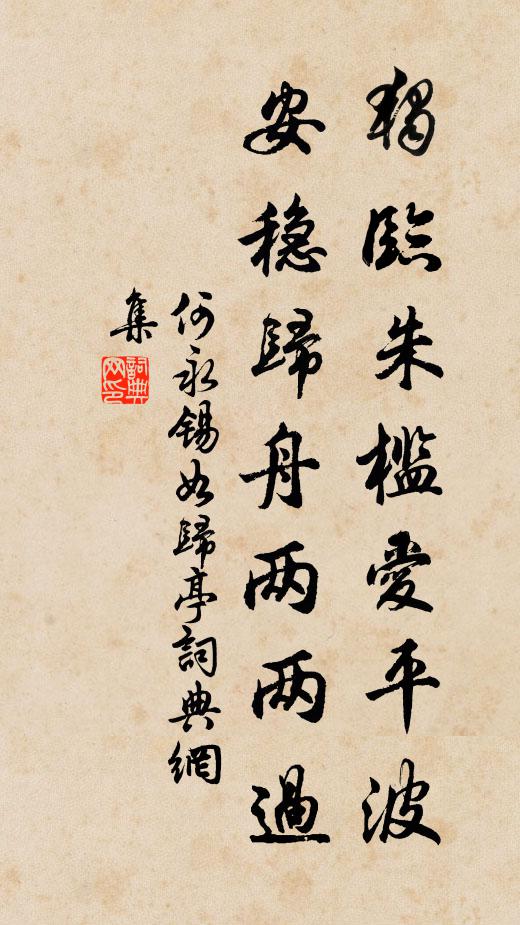 獨臨朱檻愛平波
安穩歸舟两两過
何永錫如歸亭詞典網
集
詞典
网印